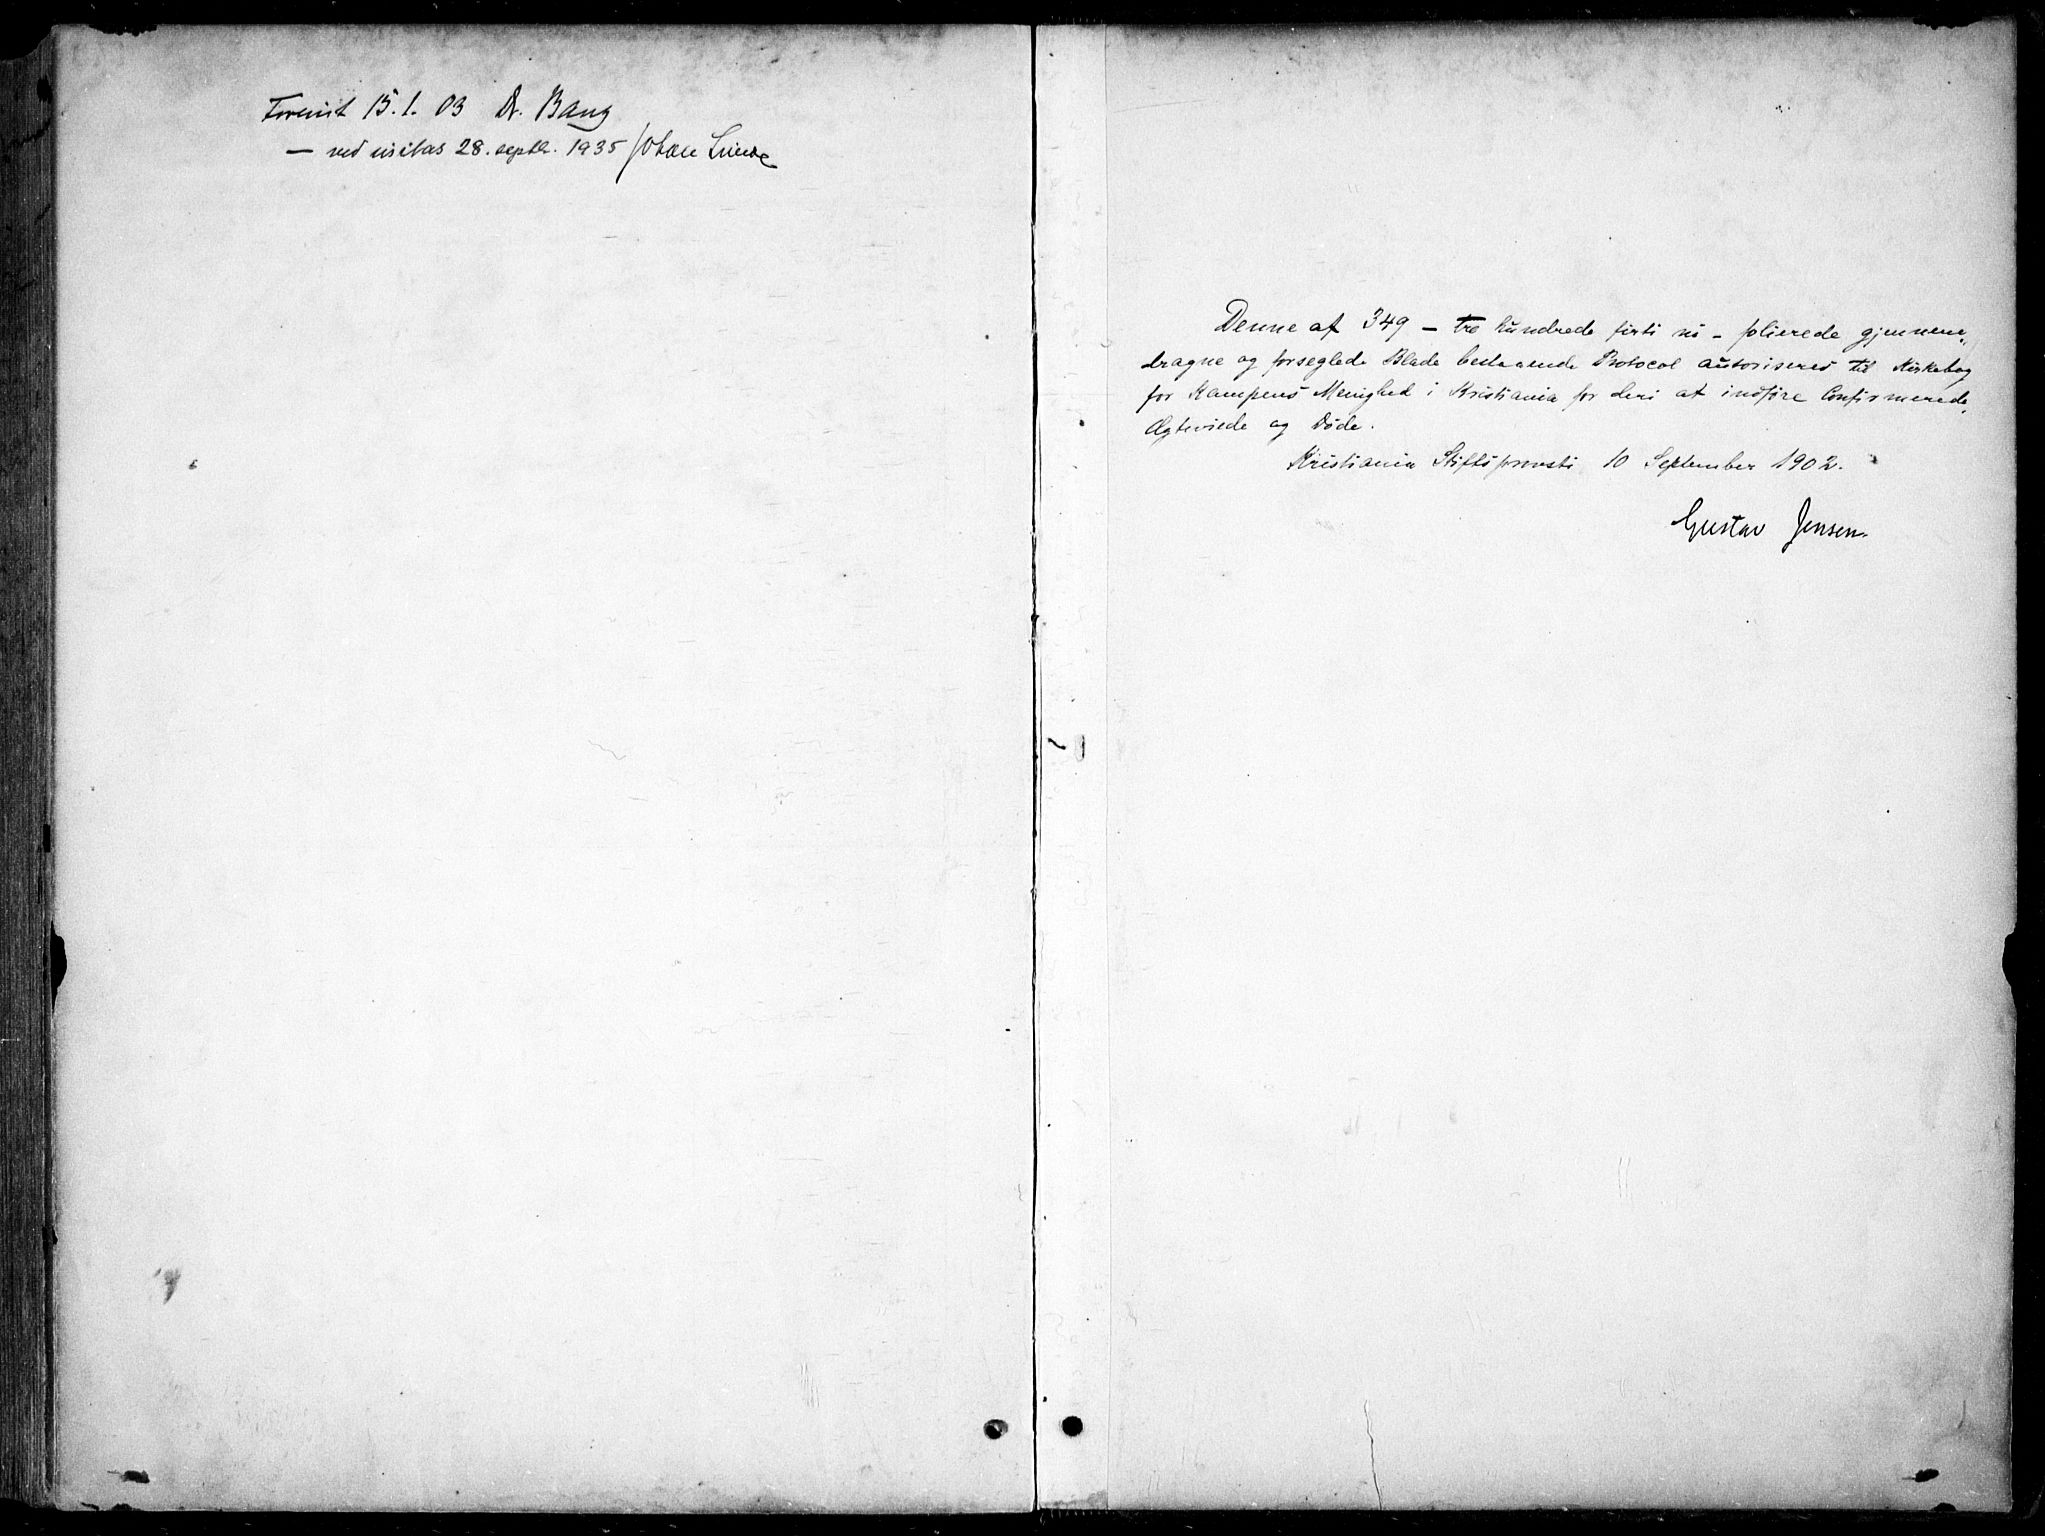 Forevist 15.1.03 Dr. Bang
— ved visitas 28. septbr. 1935 Johan Lunde
Denne af 349 – tre hundrede firti ni – folierede gjennem-
dragne og forseglede Blade bestaaende Protocol autoriseres til Kirkebog
for Kampens Menighed i Kristiania for deri at indføre Confirmerede,
Ægteviede og Døde.
Kristiania Stiftsprovsti 10 September 1902.
Gustav Jensen.